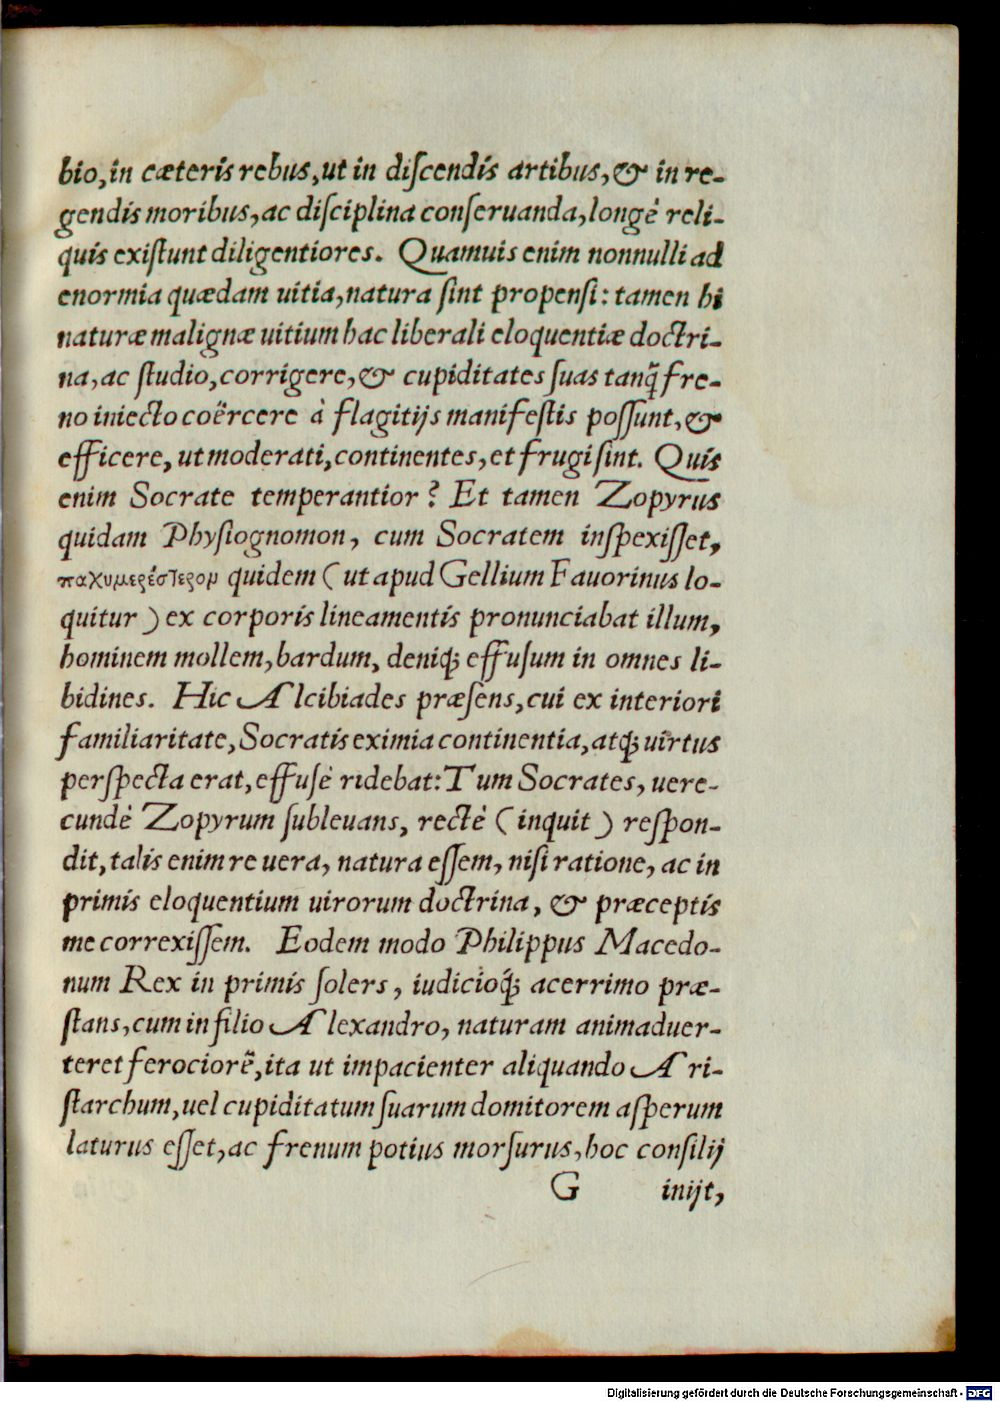 bio, in cæteris rebus, ut in diſcendis artibus, & in re-
gendis moribus, ac diſciplina conſeruanda, longè reli-
quis exiſtunt diligentiores. Quamuis enim nonnulli ad
enormia quædam uitia, natura ſint propenſi: tamen hi
naturæ malignæ uitium hac liberali eloquentiæ doctri-
na, ac ſtudio, corrigere, & cupiditates ſuas tanq̃ fre-
no iniecto coërcere à flagitijs manifeſtis poſſunt, &
efficere, ut moderati, continentes, et frugi ſint. Quis
enim Socrate temperantior? Et tamen Zopyrus
quidam Phyſiognomon, cum Socratem inſpexiſſet,
παχυμερέστερορ quidem (ut apud Gellium Fauorinus lo-
quitur) ex corporis lineamentis pronunciabat illum,
hominem mollem, bardum, deniq; effuſum in omnes li-
bidines. Hic Alcibiades præſens, cui ex interiori
familiaritate, Socratis eximia continentia, atq; uirtus
perſpecta erat, effuſè ridebat: Tum Socrates, uere-
cundè Zopyrum ſubleuans, rectè (inquit) reſpon-
dit, talis enim re uera, natura eſſem, niſi ratione, ac in
primis eloquentium uirorum doctrina, & præceptis
me correxiſſem. Eodem modo Philippus Macedo-
num Rex in primis ſolers, iudicioq́; acerrimo præ-
ſtans, cum in filio Alexandro, naturam animaduer-
teret ferociorẽ, ita ut impacienter aliquando Ari-
ſtarchum, uel cupiditatum ſuarum domitorem aſperum
laturus eſſet, ac frenum potius morſurus, hoc conſilij
G inijt,
Digitalisierung gefördert durch die Deutsche Forschungsgemeinschaft - DFG